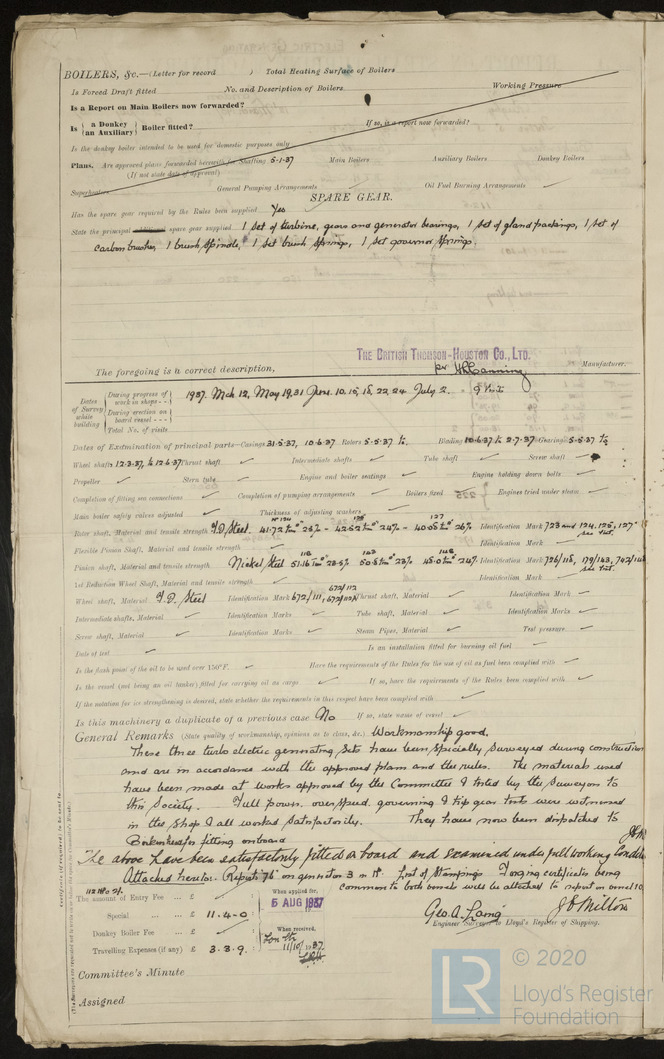 BOILERS, &c.—(Letter for record ) Total Heating Surface of Boilers
Is Forced Draft fitted No. and Description of Boilers Working Pressure
Is a Report on Main Boilers now forwarded?
Is { a Donkey / an Auxiliary } Boiler fitted? If so, is a report now forwarded?
Is the donkey boiler intended to be used for domestic purposes only
Plans. Are approved plans forwarded herewith for Shafting 5-1-37 Main Boilers Auxiliary Boilers Donkey Boilers
(If not state date of approval)
Superheaters General Pumping Arrangements Oil Fuel Burning Arrangements ✓
SPARE GEAR.
Has the spare gear required by the Rules been supplied Yes
State the principal spare gear supplied 1 set of turbine, gears and generator bearings, 1 set of gland packings, 1 set of
carbon brushes, 1 brush spindle, 1 set brush springs, 1 set governor springs.
THE BRITISH THOMSON-HOUSTON CO., LTD.
The foregoing is a correct description, Manufacturer.
Dates of Survey while building
During progress of work in shops - - 1937. Mch 12, May 19, 31 June. 10, 15, 18, 22, 24 July 2.
During erection on board vessel - - -
Total No. of visits
Dates of Examination of principal parts—Casings 31.5.37, 10.6.37 Rotors 5.5.37 Blading 10.6.37 to 2.7.37 Gearing 5.5.37
Wheel shafts 12.3.37, to 12.6.37 Thrust shaft ✓ Intermediate shafts ✓ Tube shaft ✓ Screw shaft
Propeller ✓ Stern tube ✓ Engine and boiler seatings ✓ Engine holding down bolts ✓
Completion of fitting sea connections ✓ Completion of pumping arrangements ✓ Boilers fixed ✓ Engines tried under steam ✓
Main boiler safety valves adjusted ✓ Thickness of adjusting washers ✓
Rotor shaft, Material and tensile strength Identification Mark 723 and 124, 125, 127
Flexible Pinion Shaft, Material and tensile strength ✓ Identification Mark ✓
Pinion shaft, Material and tensile strength Nickel Steel Identification Mark
1st Reduction Wheel Shaft, Material and tensile strength ✓ Identification Mark ✓
Wheel shaft, Material Steel Identification Mark 672/111, 672/112 Thrust shaft, Material ✓ Identification Mark ✓
Intermediate shafts, Material ✓ Identification Marks ✓ Tube shaft, Material ✓ Identification Marks ✓
Screw shaft, Material ✓ Identification Marks ✓ Steam Pipes, Material ✓ Test pressure ✓
Date of test ✓ Is an installation fitted for burning oil fuel ✓
Is the flash point of the oil to be used over 150°F. ✓ Have the requirements of the Rules for the use of oil as fuel been complied with ✓
Is the vessel (not being an oil tanker) fitted for carrying oil as cargo ✓ If so, have the requirements of the Rules been complied with ✓
If the notation for ice strengthening is desired, state whether the requirements in this respect have been complied with ✓
Is this machinery a duplicate of a previous case No If so, state name of vessel ✓
General Remarks (State quality of workmanship, opinions as to class, &c.) Workmanship good.
These three turbo electric generating sets have been specially surveyed during construction
and are in accordance with the approved plans and the rules. The materials used
have been made at works approved by the Committee & tested by the Surveyors to
this Society. Full power, overspeed, governing & trip gear tests were witnessed
in the shop & all worked satisfactorily. They have now been dispatched to
Birkenhead for fitting onboard
The above have been satisfactorily fitted on board and examined under full working
Attached hereto. on generator 3 List of Stampings Forging certificates being
common to both vessels will be attached to report on
The amount of Entry Fee ... £
Special ... ... £ 11.4.0
Donkey Boiler Fee ... £ ✓
Travelling Expenses (if any) £ 3.3.9
When applied for, 5 AUG 1937
When received, 11/10/1937
Geo. A. Laing J D Milton
Engineer Surveyor to Lloyd's Register of Shipping.
Committee's Minute
Assigned
LR © 2020
Lloyd's Register
Foundation